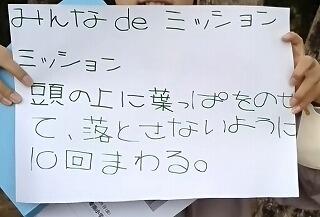 みんな de ミッション
ミッション
頭の上に葉っぱをのせ
て、落とさないように
10回まわる。